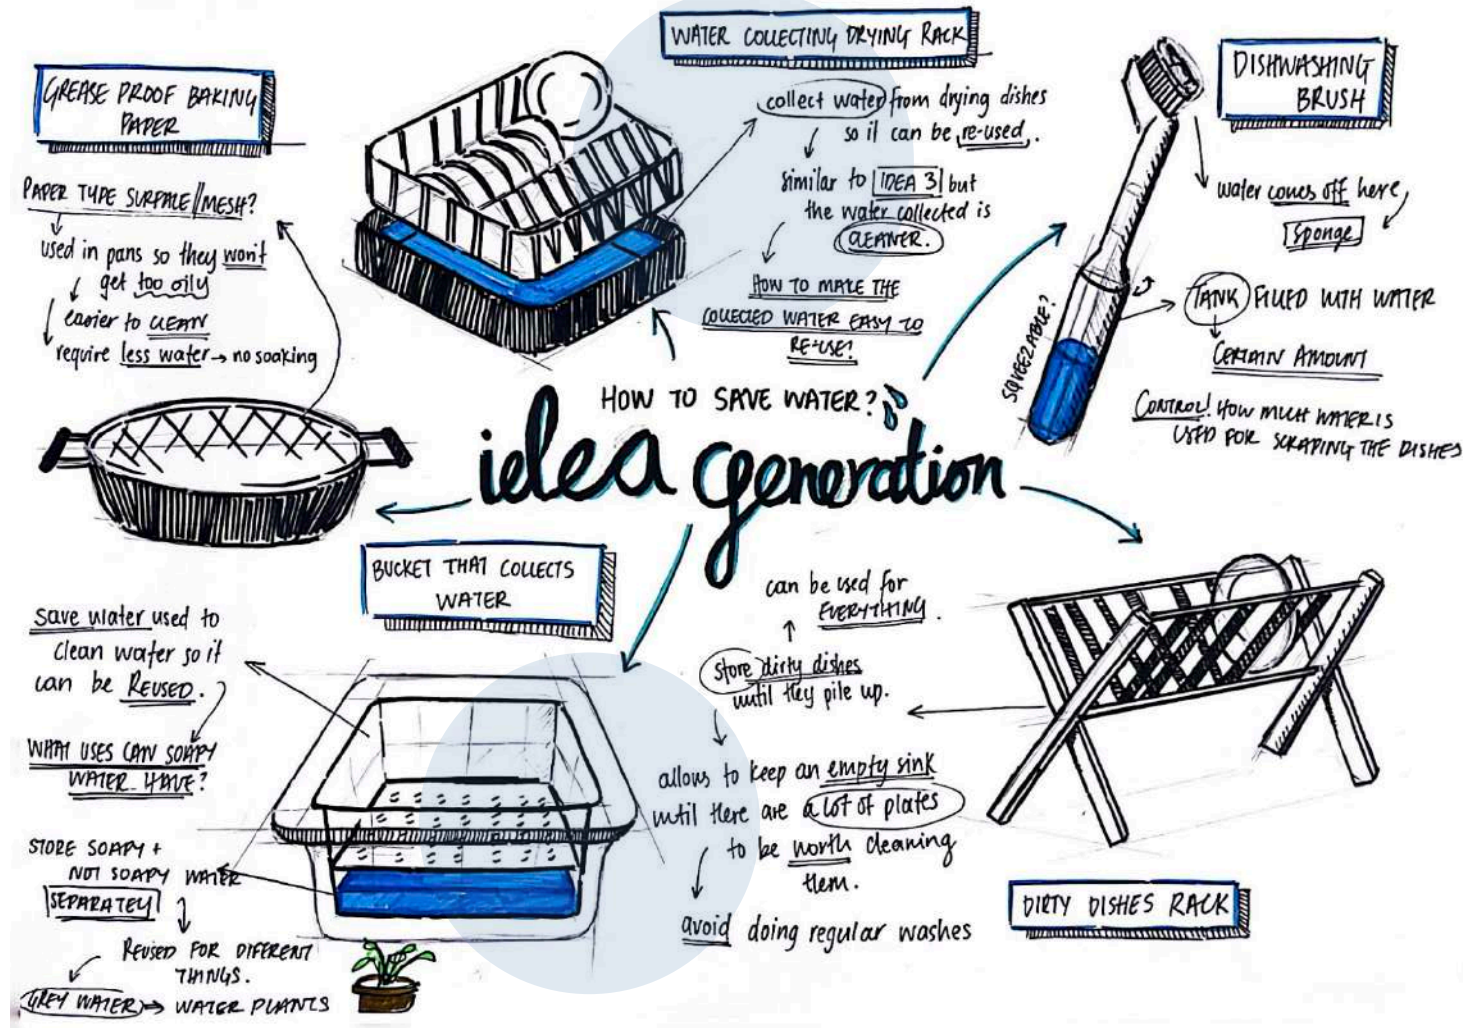 GREASE PROOF BAKING
PAPER
PAPER TYPE SURFACE//MESH?
used in pans so they won't
get too oily
easier to CLEAN
require less water → no soaking
WATER COLLECTING DRYING RACK
collect water from drying dishes
so it can be re-used.
similar to IDEA 3 but
the water collected is
CLEANER.
HOW TO MAKE THE
COLLECTED WATER EASY TO
RE-USE?
DISHWASHING
BRUSH
water comes off here,
sponge
SQUEEZABLE?
TANK FILLED WITH WATER
CERTAIN AMOUNT
CONTROL! HOW MUCH WATER IS
USED FOR SCRAPING THE DISHES
HOW TO SAVE WATER?
idea generation
BUCKET THAT COLLECTS
WATER
save water used to
clean water so it
can be REUSED.
WHAT USES CAN SOAPY
WATER HAVE?
STORE SOAPY +
NOT SOAPY WATER
SEPARATELY
REUSED FOR DIFERENT
THINGS.
GREY WATER → WATER PLANTS
can be used for
EVERYTHING.
store dirty dishes
until they pile up.
allows to keep an empty sink
until there are a lot of plates
to be worth cleaning
them.
avoid doing regular washes
DIRTY DISHES RACK